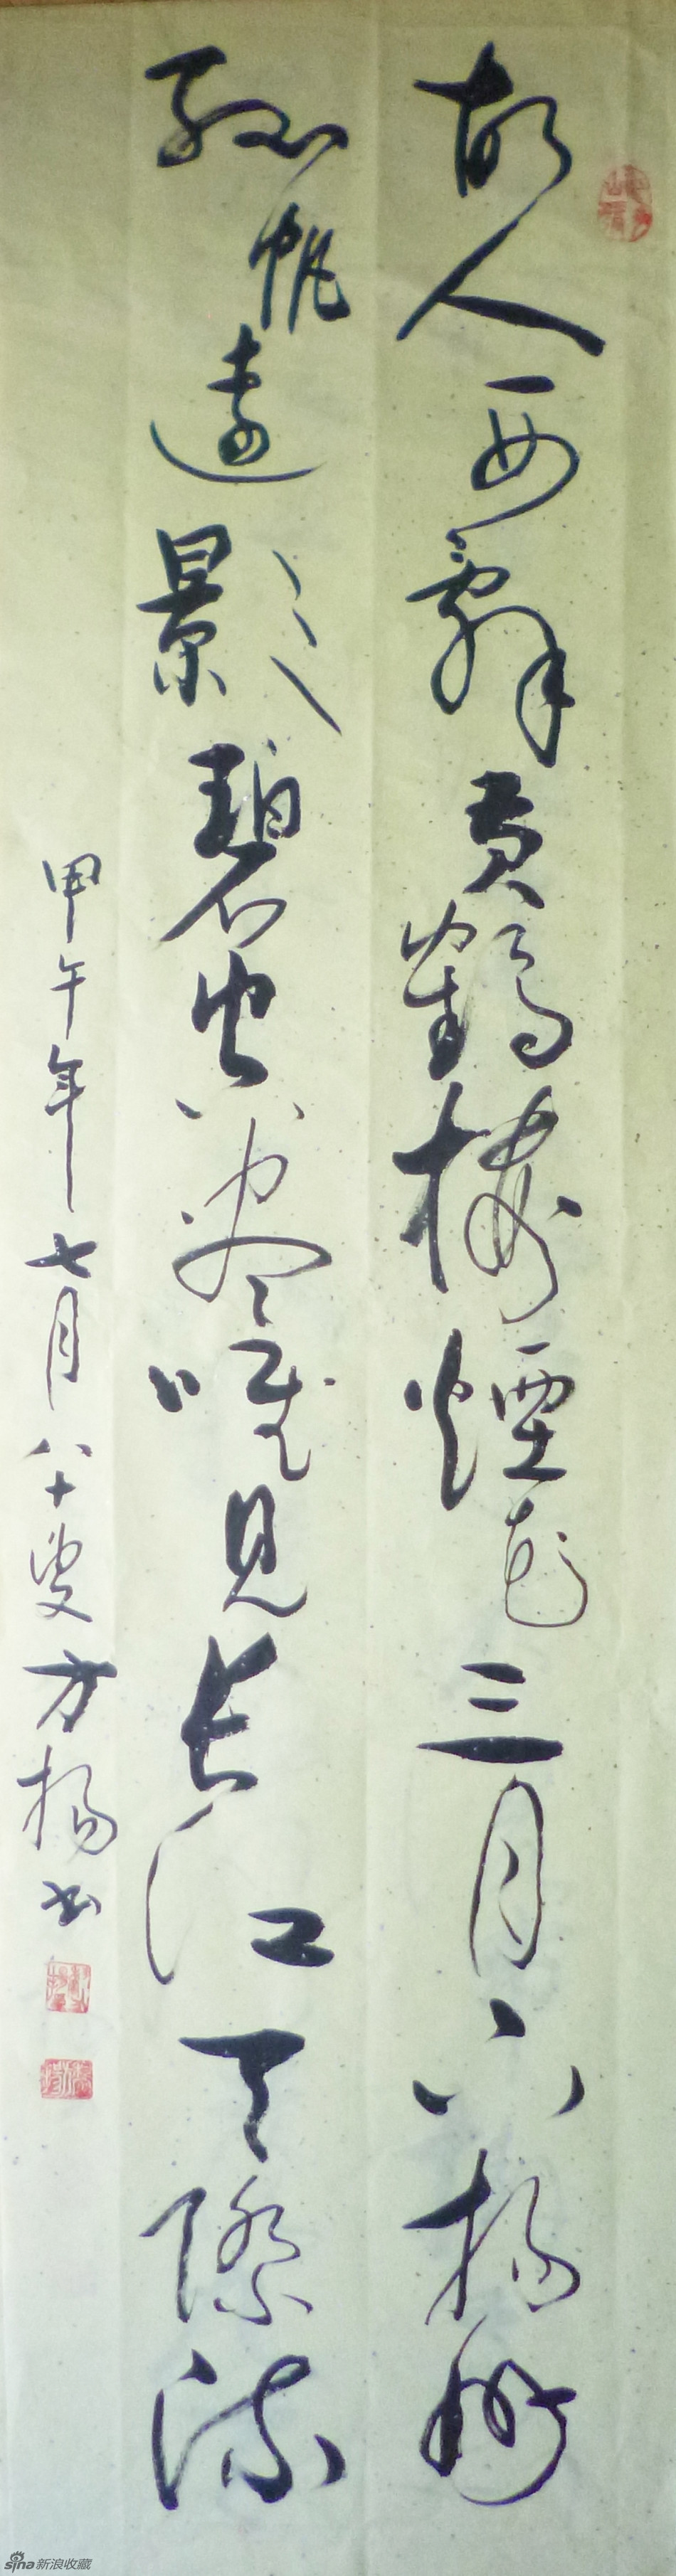 故人西辭黄鶴樓煙花三月下揚州
孤帆遠影碧空盡唯見長江天際流
甲午年七月八十叟方揚书
sina新浪收藏